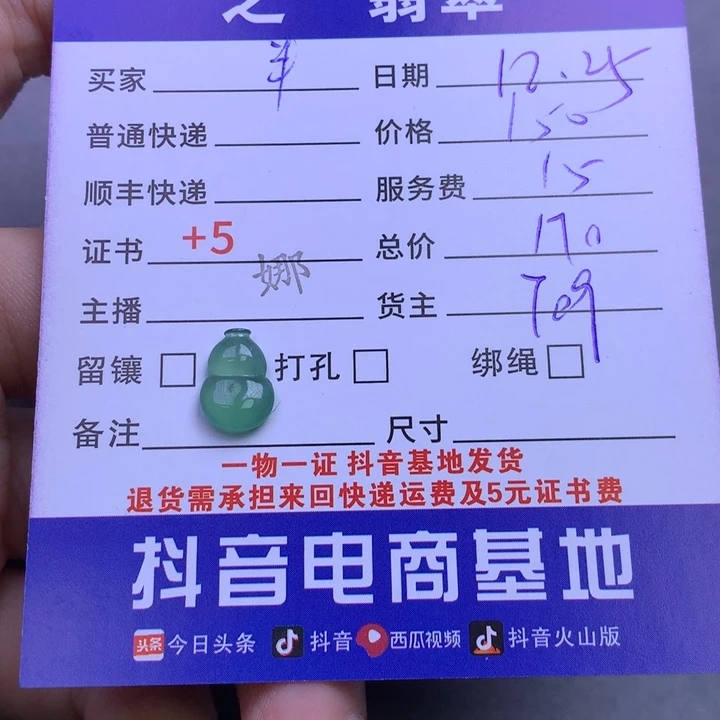 之 翡翠
买家 羊 日期 12.25
普通快递 价格 150
顺丰快递 服务费 15
证书 +5 总价 170
主播 娜 货主 T09
留镶 打孔 绑绳
备注 尺寸
一物一证 抖音基地发货
退货需承担来回快递运费及5元证书费
抖音电商基地
头条 今日头条 抖音 西瓜视频 抖音火山版